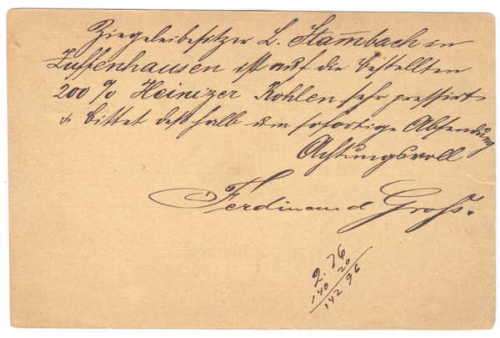 Ziegeleibesitzer L. Stambach in
Zuffenhausen ist auf die bestellten
200 % Heinitzer Kohlen sehr pressirt
& bittet deßhalb um sofortige Absendung
Achtungsvoll
Ferdinand Groß.
2.76
140 20
142 96